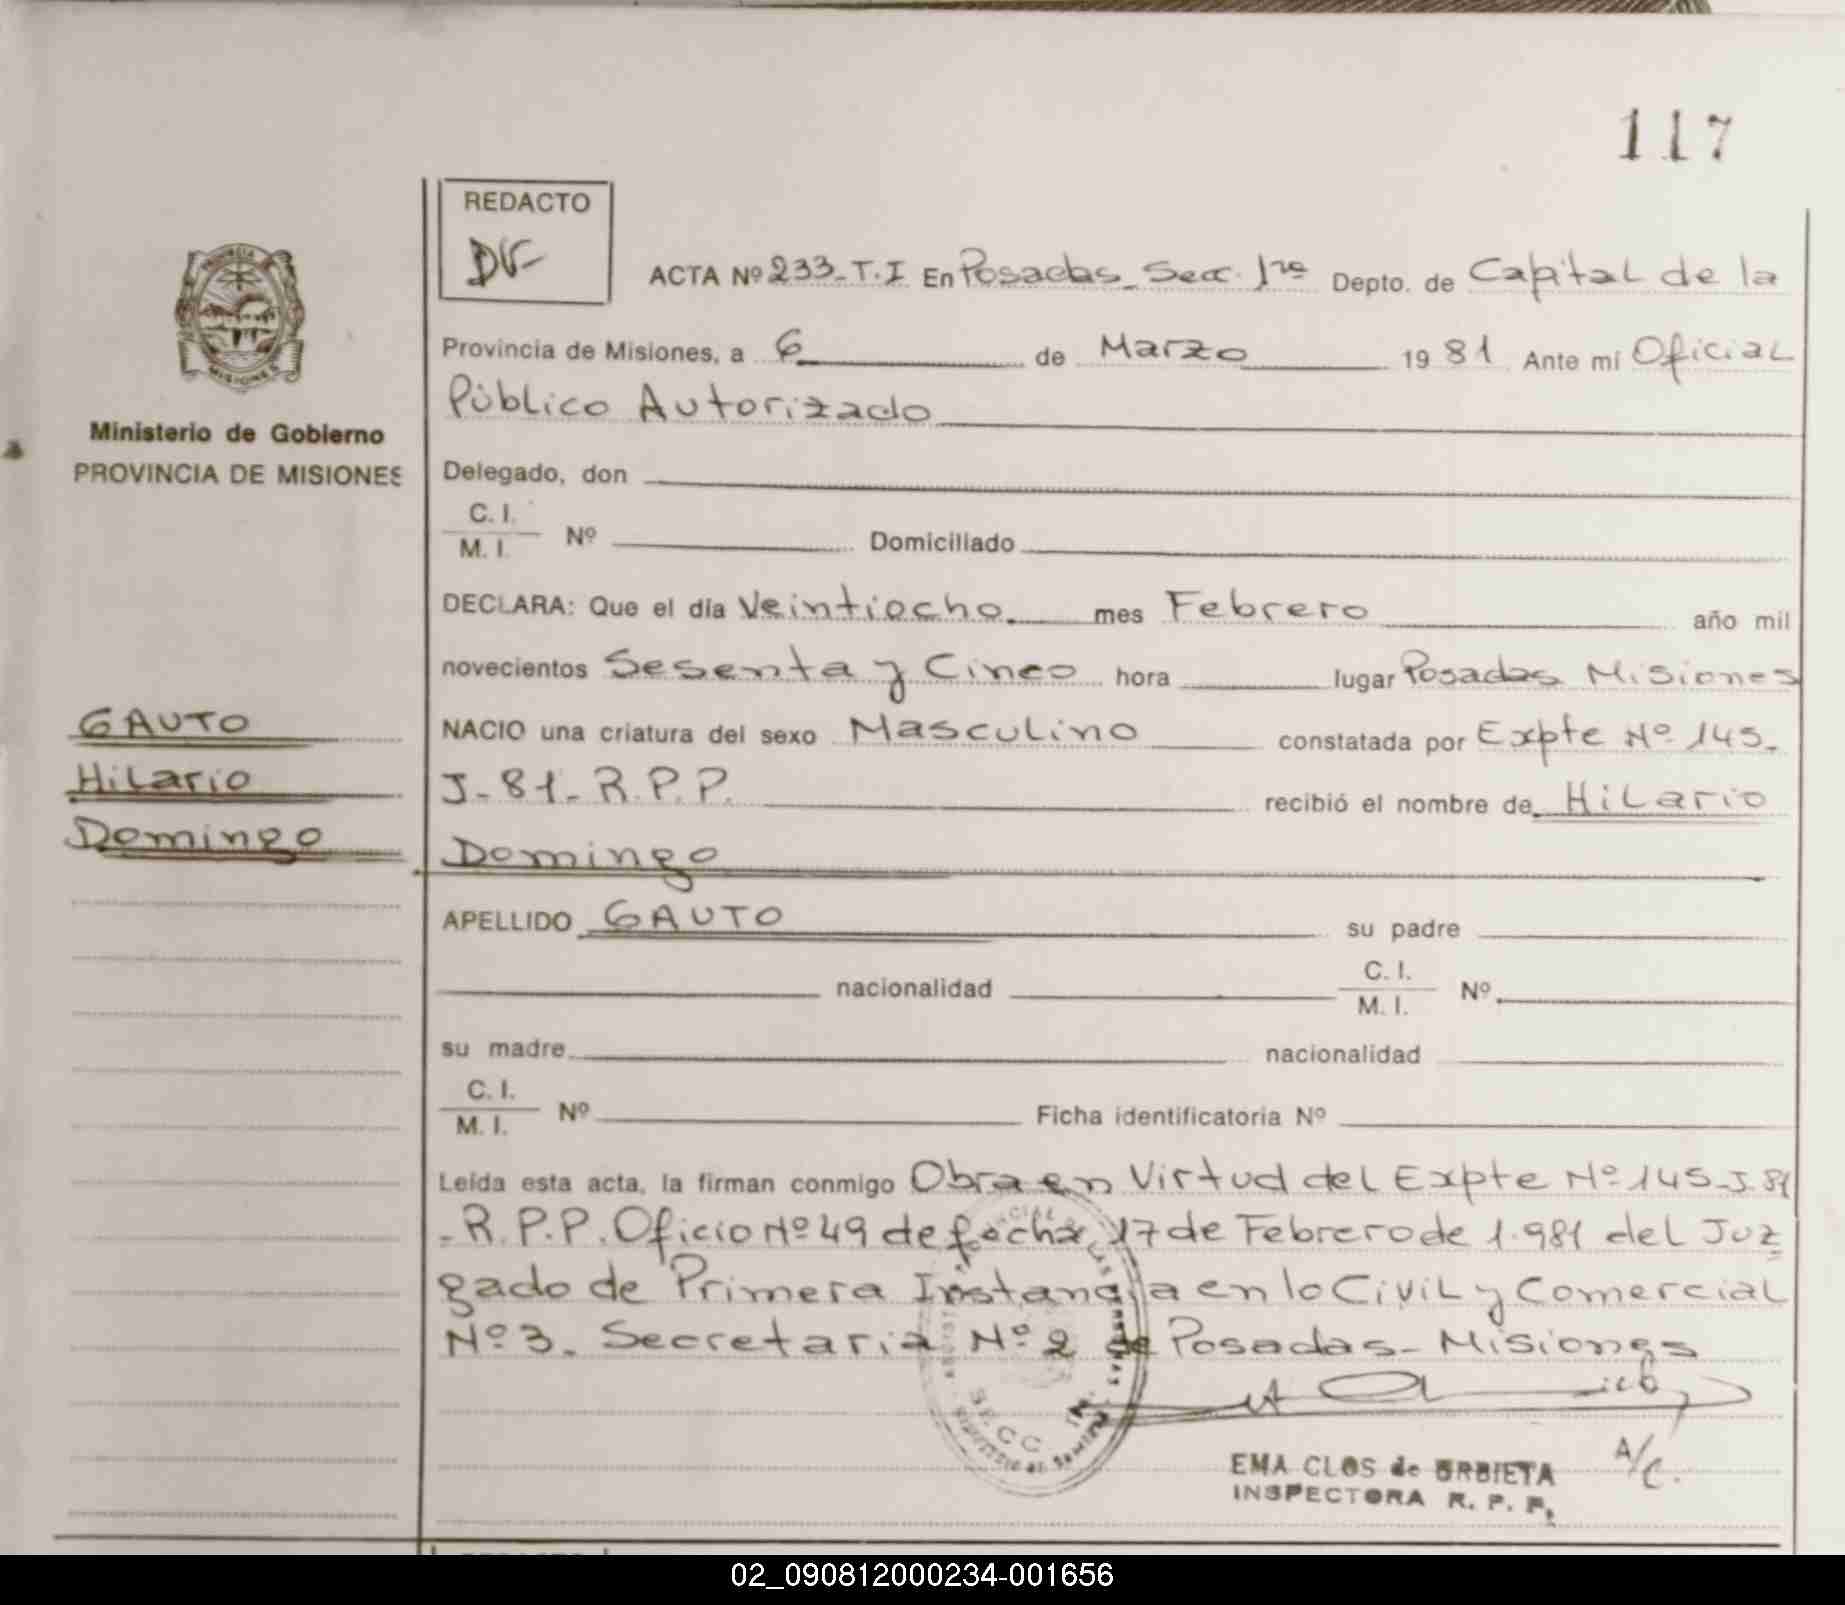 117
REDACTO
DG
ACTA Nº 233-T.I En Posadas Secc. 1ra Depto. de Capital de la
Provincia de Misiones, a 6 de Marzo 19 81 Ante mí Oficial
Público Autorizado
PROVINCIA
MISIONES
Ministerio de Gobierno
PROVINCIA DE MISIONES
Delegado, don
C. I.
M. I. Nº Domiciliado
DECLARA: Que el día Veintiocho mes Febrero año mil
novecientos Sesenta y Cinco hora lugar Posadas Misiones
GAUTO
Hilario
Domingo
NACIO una criatura del sexo Masculino constatada por Expte Nº 145-
J-81-R.P.P. recibió el nombre de Hilario
Domingo
APELLIDO GAUTO su padre
nacionalidad C. I.
M. I. Nº
su madre nacionalidad
C. I.
M. I. Nº Ficha identificatoria Nº
Leída esta acta, la firman conmigo Obra en Virtud del Expte Nº 145-J-81
-R.P.P. Oficio Nº 49 de fecha 17 de Febrero de 1.981 del Juz
gado de Primera Instancia en lo Civil y Comercial
Nº 3. Secretaria Nº 2 de Posadas-Misiones
EMA CLOS de URBIETA
INSPECTORA R. P. P.
A/C.
02_090812000234-001656